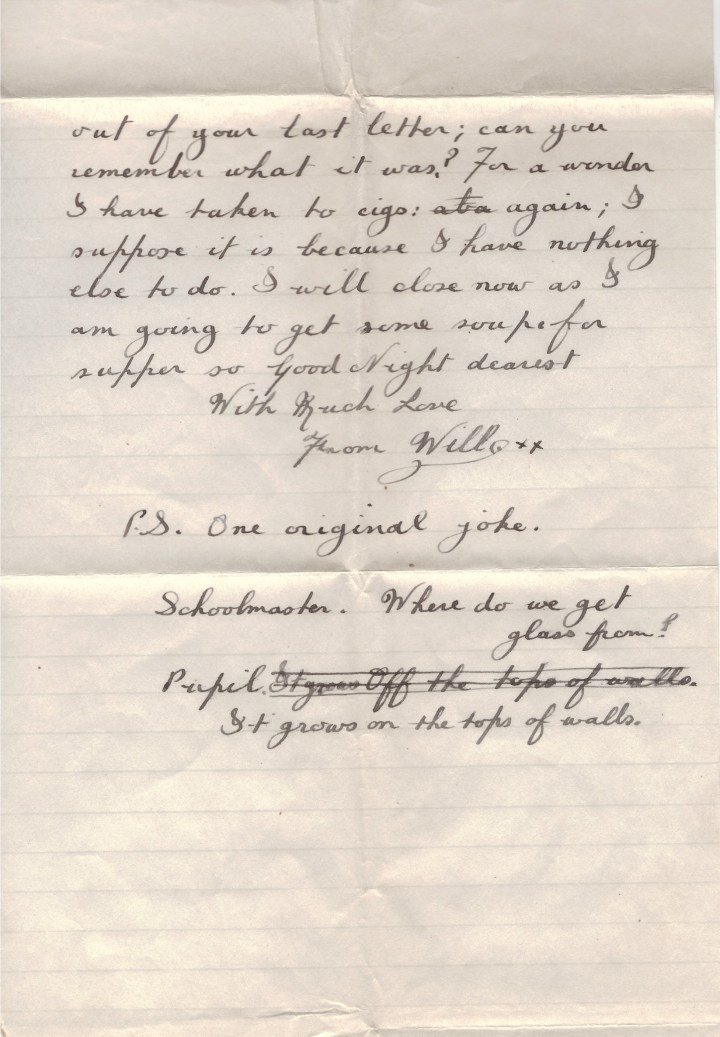 out of your last letter; can you
remember what it was? For a wonder
I have taken to cigs: again; I
suppose it is because I have nothing
else to do. I will close now as I
am going to get some soup for
supper so Good Night dearest
With Much Love
From Will xx
P.S. One original joke.
Schoolmaster. Where do we get
glass from?
Pupil. It grows Off the tops of walls.
It grows on the tops of walls.